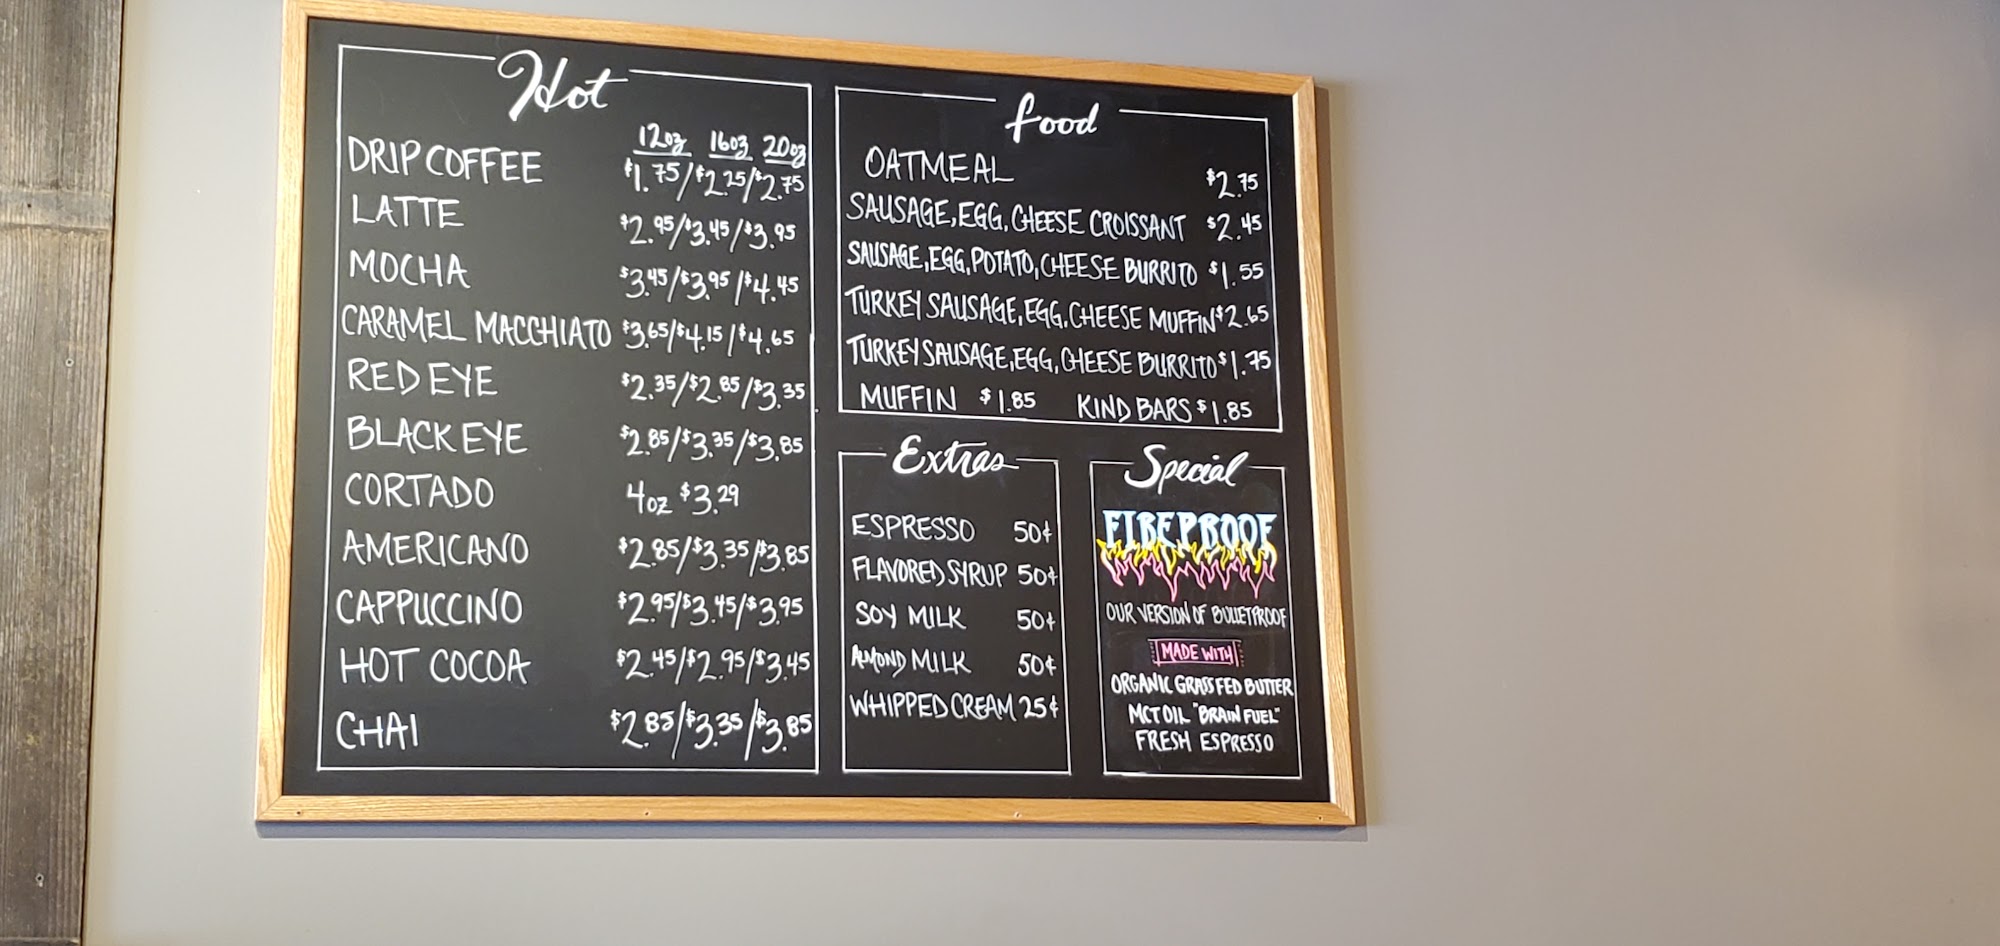 Hot
12oz 16oz 20oz
DRIP COFFEE $1.75/$2.25/$2.75
LATTE $2.95/$3.45/$3.95
MOCHA $3.45/$3.95/$4.45
CARAMEL MACCHIATO $3.65/$4.15/$4.65
RED EYE $2.35/$2.85/$3.35
BLACK EYE $2.85/$3.35/$3.85
CORTADO 4oz $3.29
AMERICANO $2.85/$3.35/$3.85
CAPPUCCINO $2.95/$3.45/$3.95
HOT COCOA $2.45/$2.95/$3.45
CHAI $2.85/$3.35/$3.85
food
OATMEAL $2.75
SAUSAGE, EGG, CHEESE CROISSANT $2.45
SAUSAGE, EGG, POTATO, CHEESE BURRITO $1.55
TURKEY SAUSAGE, EGG, CHEESE MUFFIN $2.65
TURKEY SAUSAGE, EGG, CHEESE BURRITO $1.75
MUFFIN $1.85 KIND BARS $1.85
Extras
ESPRESSO 50¢
FLAVORED SYRUP 50¢
SOY MILK 50¢
ALMOND MILK 50¢
WHIPPED CREAM 25¢
Special
FIREPROOF
OUR VERSION OF BULLETPROOF
MADE WITH
ORGANIC GRASSFED BUTTER
MCT OIL "BRAIN FUEL"
FRESH ESPRESSO